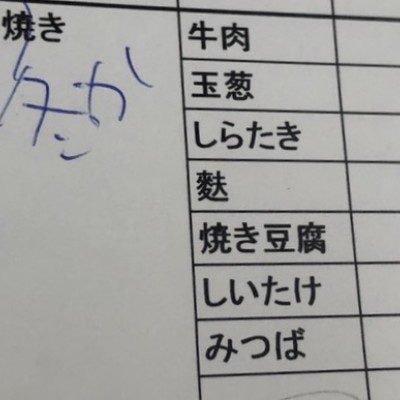 焼き
牛肉
玉葱
しらたき
麩
焼き豆腐
しいたけ
みつば